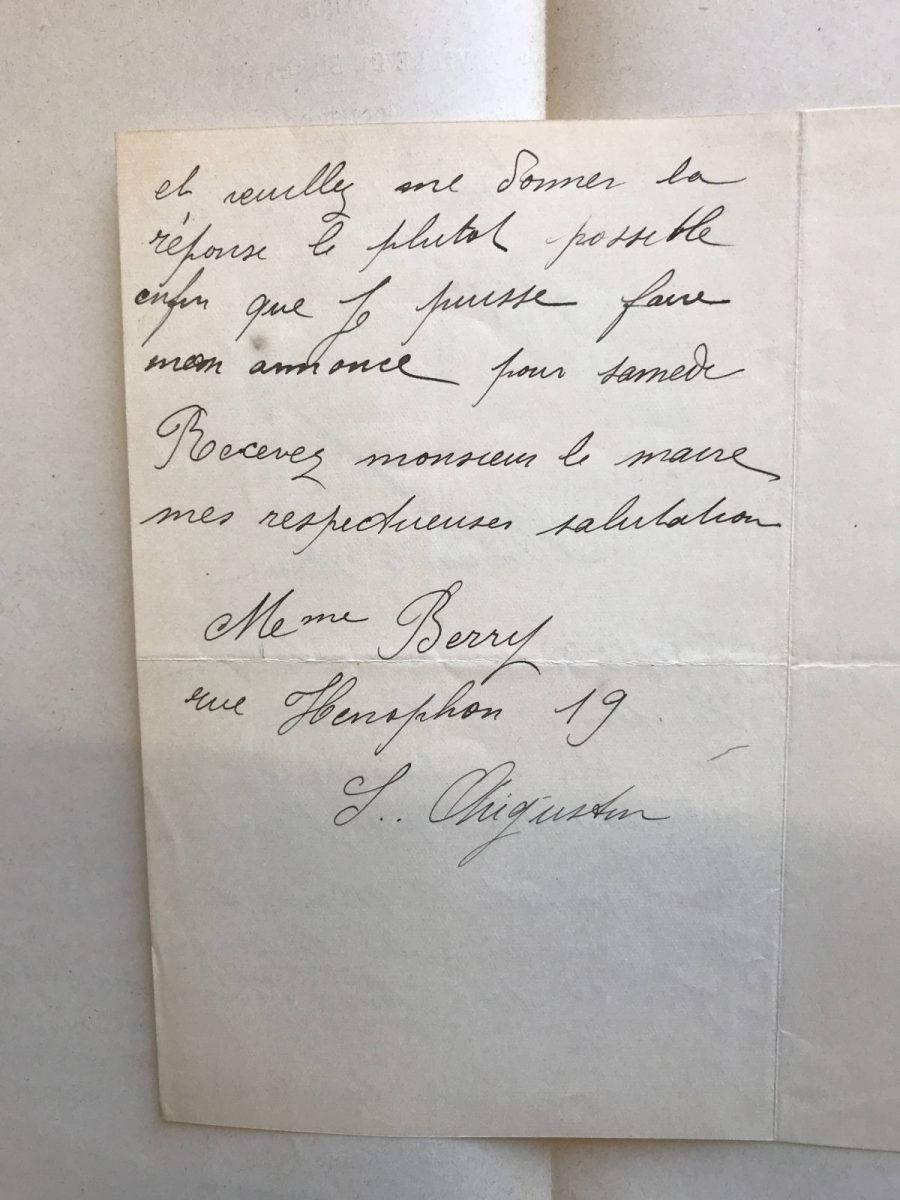 et veuillez me donner la
réponse le plutot possible
enfin que je puisse faire
mon annonce pour samedi
Recevez monsieur le maire
mes respectueuses salutation
Meme Berry
rue Henophon 19
S..